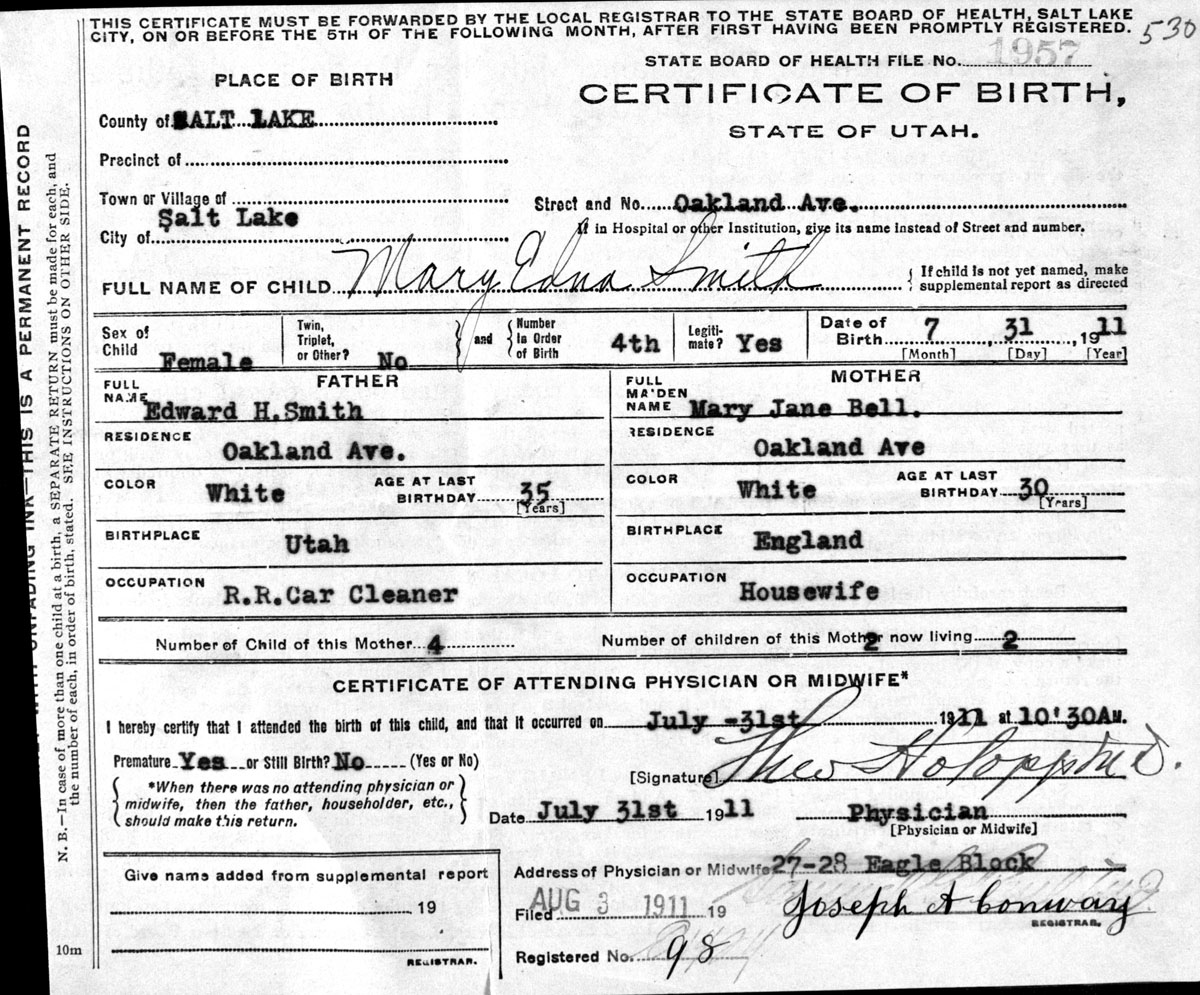 THIS CERTIFICATE MUST BE FORWARDED BY THE LOCAL REGISTRAR TO THE STATE BOARD OF HEALTH, SALT LAKE
CITY, ON OR BEFORE THE 5TH OF THE FOLLOWING MONTH, AFTER FIRST HAVING BEEN PROMPTLY REGISTERED.
530
STATE BOARD OF HEALTH FILE No. 1957
PLACE OF BIRTH
CERTIFICATE OF BIRTH,
STATE OF UTAH.
County of SALT LAKE
Precinct of
Town or Village of
City of Salt Lake
Street and No. Oakland Ave.
If in Hospital or other Institution, give its name instead of Street and number.
FULL NAME OF CHILD Mary Edna Smith
{ If child is not yet named, make
supplemental report as directed
Sex of Child Female
Twin, Triplet, or Other? No
and
Number In Order of Birth 4th
Legiti-mate? Yes
Date of Birth 7, 31, 1911
[Month] [Day] [Year]
FATHER
FULL NAME Edward H.Smith
RESIDENCE Oakland Ave.
COLOR White
AGE AT LAST BIRTHDAY 35
[Years]
BIRTHPLACE Utah
OCCUPATION R.R.Car Cleaner
MOTHER
FULL MAIDEN NAME Mary Jane Bell.
RESIDENCE Oakland Ave
COLOR White
AGE AT LAST BIRTHDAY 30
[Years]
BIRTHPLACE England
OCCUPATION Housewife
Number of Child of this Mother 4
Number of children of this Mother now living 2
2
CERTIFICATE OF ATTENDING PHYSICIAN OR MIDWIFE*
I hereby certify that I attended the birth of this child, and that it occurred on July -31st 1911 at 10'30AM.
Premature Yes or Still Birth? No (Yes or No)
{ *When there was no attending physician or
midwife, then the father, householder, etc.,
should make this return. }
[Signature] Theo
Date July 31st 1911
Physician
[Physician or Midwife]
Give name added from supplemental report
19
REGISTRAR.
10m
Address of Physician or Midwife 27-28 Eagle Block
Filed AUG 3 1911 19
Joseph A Conway
REGISTRAR.
Registered No. 98
THIS IS A PERMANENT RECORD
N. B.—In case of more than one child at a birth, a SEPARATE RETURN must be made for each, and
the number of each, in order of birth, stated. SEE INSTRUCTIONS ON OTHER SIDE.